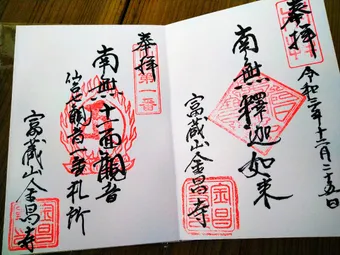 奉拝
令和二年十二月二十五日
南無釋迦如来
富蔵山金昌寺
奉拝
第一番
南無十一面觀音
七観音一番札所
富蔵山金昌寺